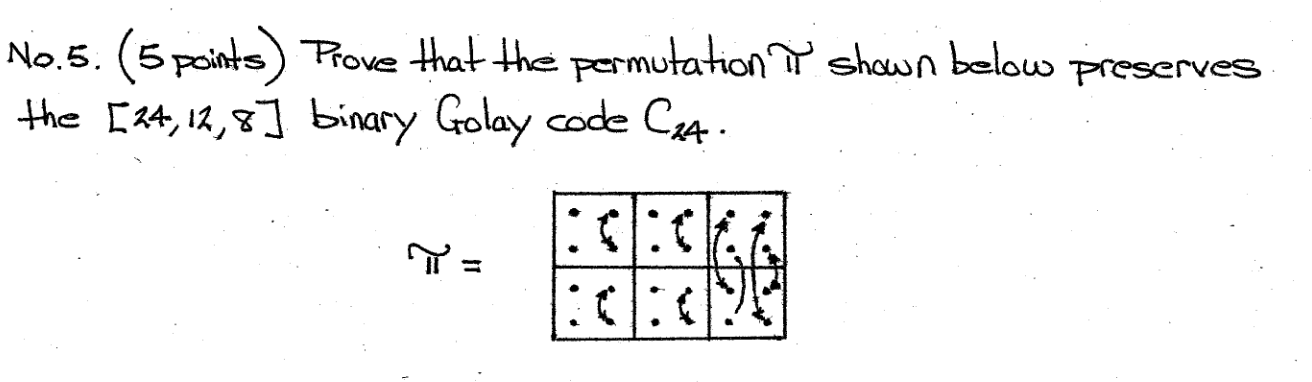 No.5. (5 points) Prove that the permutation π shown below preserves
the [24,12,8] binary Golay code C₂₄.
π =